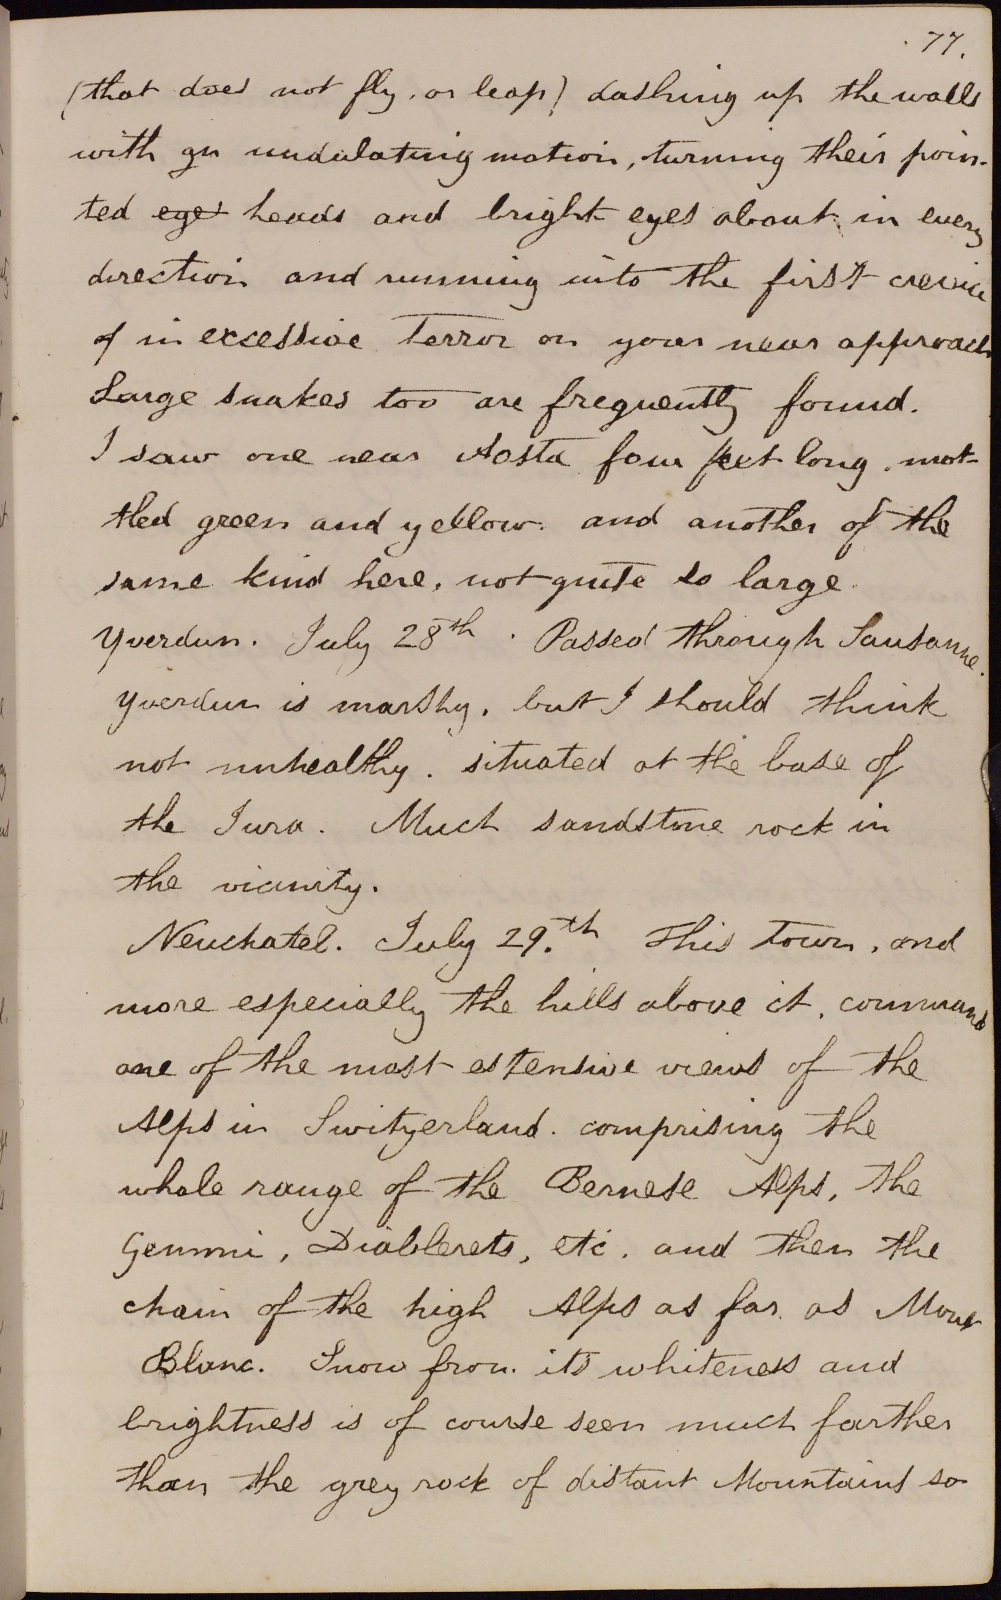 77.
(that does not fly, or leap) dashing up the walls
with an undulating motion, turning their poin-
ted eyes heads and bright eyes about in every
direction and running into the first crevice
of in excessive terror on your near approach
Large snakes too are frequently found.
I saw one near Aosta four feet long, mot-
tled green and yellow. and another of the
same kind here, not quite so large.
Yverdun. July 28th. Passed through Lausanne.
Yverdun is marshy, but I should think
not unhealthy. situated at the base of
the Jura. Much sandstone rock in
the vicinity.
Neuchatel. July 29.th This town, and
more especially the hills above it, command
one of the most extensive views of the
Alps in Switzerland. comprising the
whole range of the Bernese Alps, the
Gemmi, Diablerets, etc. and then the
chain of the high Alps as far as Mont
Blanc. Snow from its whiteness and
brightness is of course seen much farther
than the grey rock of distant Mountains so